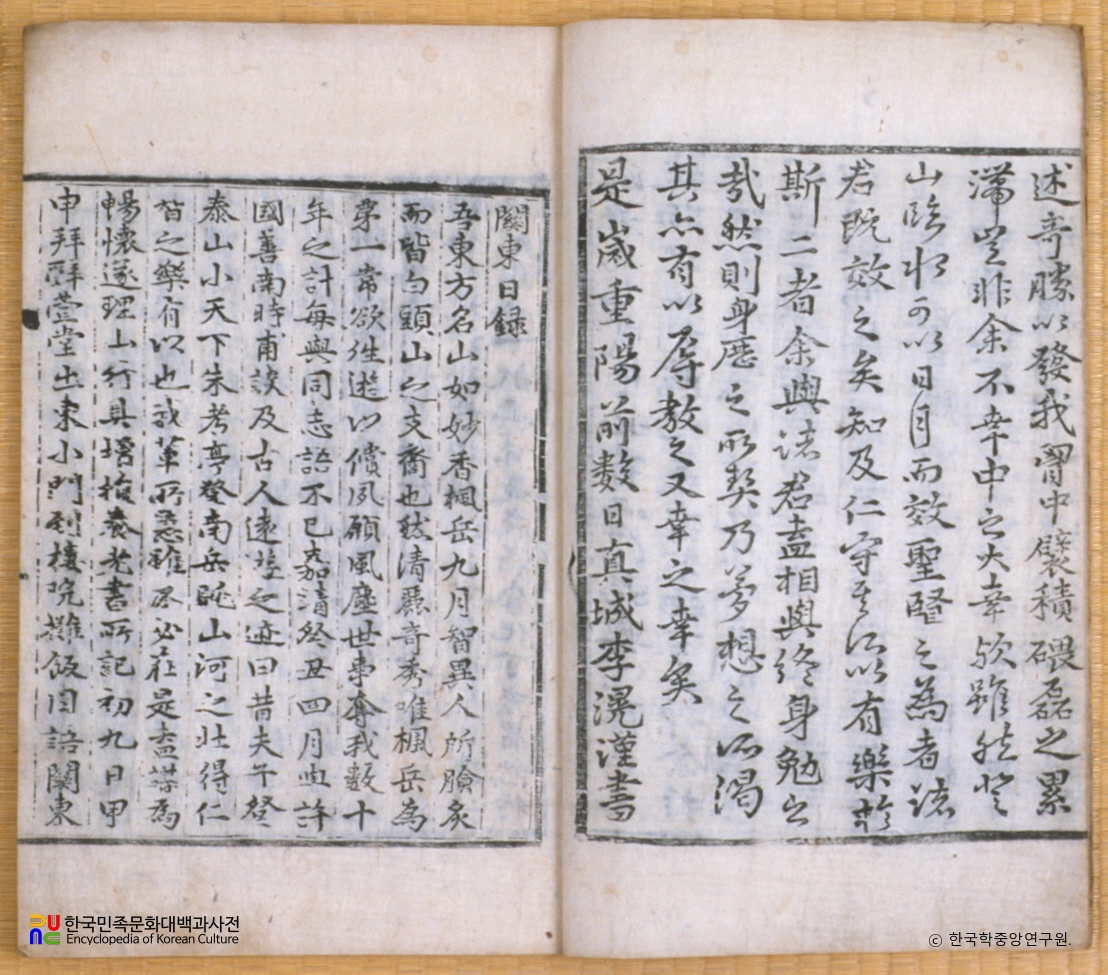 述奇勝以發我胷中襞積磈磊之累
滯豈非余不幸中之大幸欤雖然登
山臨水可以日月而效聖賢之為者諸
君既效之矣知及仁守所以有樂於
斯二者余與諸君盍相與終身勉之
哉然則身歷之所契乃夢想之所渴
其亦有以辱教之又幸之幸矣
是歲重陽前數日真城李滉謹書
關東日録
吾東方名山如妙香楓岳九月智異人所膾炙
而皆白頭山之支裔也然清麗奇秀唯楓岳為
第一常欲徃遊以償夙願風塵世事奪我數十
年之計每與同志語不已嘉清癸丑四月與許
國善南時甫談及古人遠遊之迹曰昔夫子登
泰山小天下朱考亭登南岳眺山河之壯得仁
智之樂有以也我輩所
暢懷遂理山行具
書所記初九日甲
申拜辭萱堂出東小門到樓院攤飯因語關東
한국민족문화대백과사전
Encyclopedia of Korean Culture
© 한국학중앙연구원.